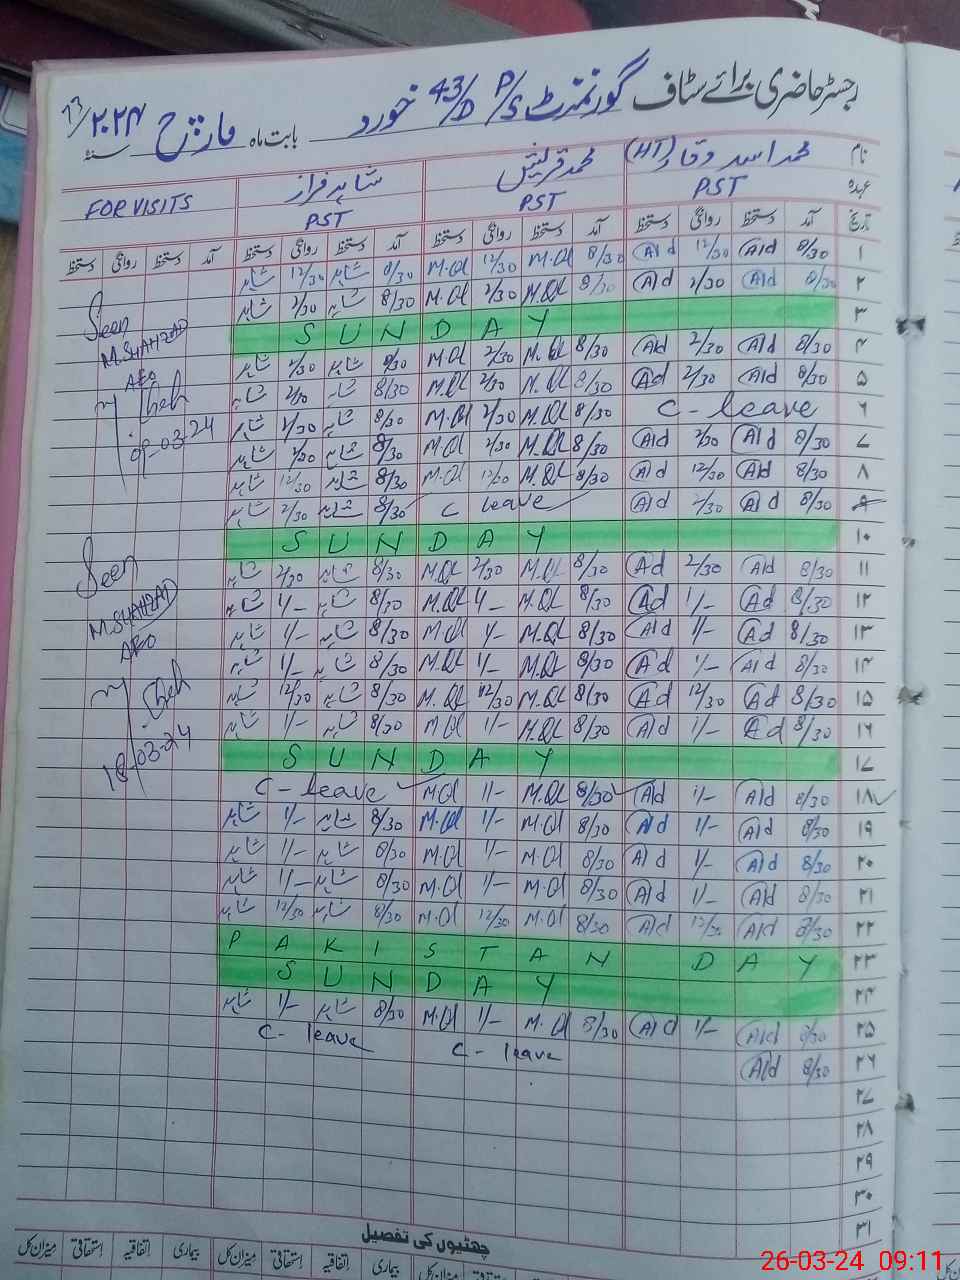 رجسٹر حاضری برائے سٹاف گورنمنٹ P/S 43/D خورد بابت ماہ مارچ ۲۰۲۴ سنہ
نام محمد اسد وقار (HT) محمد قریش شاہد فراز
عہدہ PST PST PST FOR VISITS
تاریخ آمد دستخط روانگی دستخط آمد دستخط روانگی دستخط آمد دستخط روانگی دستخط آمد دستخط روانگی دستخط
۱ 8/30 Ald 12/30 Ald 8/30 M.Ql 12/30 M.Ql 8/30 شاہد 12/30 شاہد
۲ 8/30 Ald 2/30 Ald 8/30 M.Ql 2/30 M.Ql 8/30 شاہد 2/30 شاہد
۳ SUNDAY
۴ 8/30 Ald 2/30 Ald 8/30 M.Ql 2/30 M.Ql 8/30 شاہد 2/30 شاہد
۵ 8/30 Ald 2/30 Ad 8/30 M.Ql 2/30 M.Ql 8/30 شاہد 2/30 شاہد
۶ C-leave 8/30 M.Ql 2/30 M.Ql 8/30 شاہد 2/30 شاہد
۷ 8/30 Ald 2/30 Ald 8/30 M.Ql 2/30 M.Ql 8/30 شاہد 2/30 شاہد
۸ 8/30 Ald 12/30 Ald 8/30 M.Ql 12/30 M.Ql 8/30 شاہد 12/30 شاہد
۹ 8/30 Ald 2/30 Ald C leave 8/30 شاہد 2/30 شاہد
۱۰ SUNDAY
۱۱ 8/30 Ald 2/30 Ad 8/30 M.Ql 2/30 M.Ql 8/30 شاہد 2/30 شاہد
۱۲ 8/30 Ad 1/- Ad 8/30 M.Ql 1/- M.Ql 8/30 شاہد 1/- شاہد
۱۳ 8/30 Ad 1/- Ald 8/30 M.Ql 1/- M.Ql 8/30 شاہد 1/- شاہد
۱۴ 8/30 Ald 1/- Ad 8/30 M.Ql 1/- M.Ql 8/30 شاہد 1/- شاہد
۱۵ 8/30 Ad 12/30 Ad 8/30 M.Ql 12/30 M.Ql 8/30 شاہد 12/30 شاہد
۱۶ 8/30 Ad 1/- Ald 8/30 M.Ql 1/- M.Ql 8/30 شاہد 1/- شاہد
۱۷ SUNDAY
۱۸ 8/30 Ald 1/- Ald 8/30 M.Ql 1/- M.Ql C-leave
۱۹ 8/30 Ald 1/- Ald 8/30 M.Ql 1/- M.Ql 8/30 شاہد 1/- شاہد
۲۰ 8/30 Ald 1/- Ald 8/30 M.Ql 1/- M.Ql 8/30 شاہد 1/- شاہد
۲۱ 8/30 Ald 1/- Ald 8/30 M.Ql 1/- M.Ql 8/30 شاہد 1/- شاہد
۲۲ 8/30 Ald 12/30 Ald 8/30 M.Ql 12/30 M.Ql 8/30 شاہد 12/30 شاہد
۲۳ PAKISTAN DAY
۲۴ SUNDAY
۲۵ 8/30 Ald 1/- Ald 8/30 M.Ql 1/- M.Ql 8/30 شاہد 1/- شاہد
۲۶ 8/30 Ald C-leave C-leave
۲۷
۲۸
۲۹
۳۰
۳۱
Seen
M.SHAHZAD
AEO
09-03-24
Seen
M.SHAHZAD
AEO
18-03-24
چھٹیوں کی تفصیل
بیماری اتفاقیہ استحقاقی میزان کل بیماری اتفاقیہ استحقاقی میزان کل
26-03-24 09:11